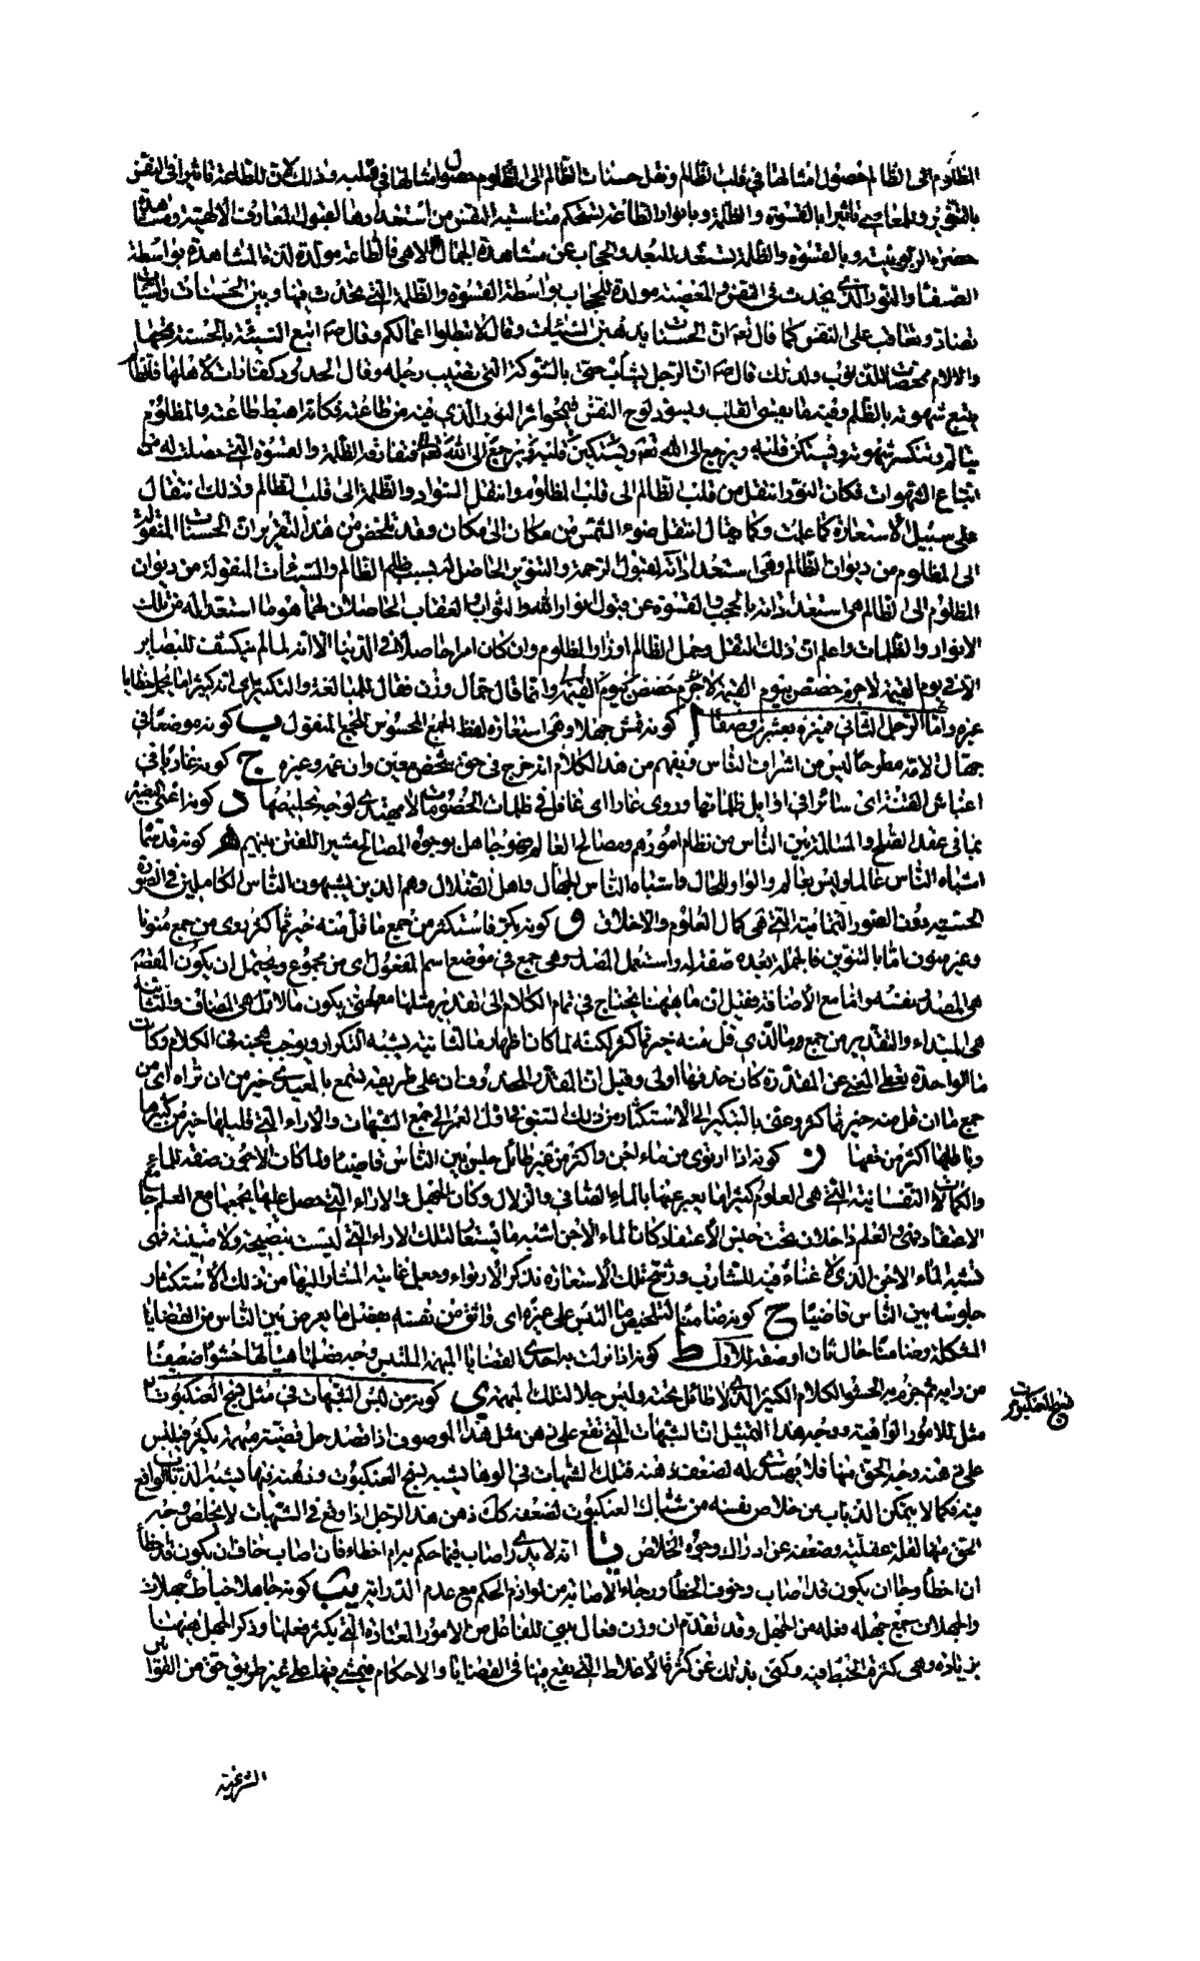 المظلوم الى الظالم حصول امثالها في قلب الظالم ونقل حسنات الظالم الى المظلوم حصول امثالها في قلبه وذلك لان للطاعة تاثيرا في النفس
بالتنوير وللمعاصي تاثيرا بالقسوة والظلمة وبانوار الطاعة تستحكم مناسبة النفس من استعدادها لقبول المعارف الالهية ومشاهدة
حضرة الربوبية وبالقسوة والظلمة تستعد للبعد والحجاب عن مشاهدة الجمال الالهي فالطاعة مولدة لذة المشاهدة بواسطة
الصفا والنور الذي يحدث في النفس والمعصية مولدة للحجاب بواسطة القسوة والظلمة التي يحدث فيها وبين الحسنات والسيئات
تضاد وتعاقب على النفس كما قال تعم ان الحسنات يذهبن السيئات وقال لا تبطلوا اعمالكم وقال صم اتبع السيئة بالحسنة تمحها
والالام ممحصات للذنوب ولذلك قال صم ان الرجل يثاب حتى بالشوكة التي تصيب رجله وقال الحدود كفارات لاهلها فالظالم
يتبع شهوته بالظلم وفيه ما يقسى القلب ويسود لوح النفس فيمحو اثر النور الذي فيه من طاعته فكانه احبط طاعته والمظلوم
يتالم وتنكسر شهوته ويستكن قلبه ويرجع الى الله تعم فتفارقه الظلمة والقسوة التي حصلت له من
اتباع الشهوات فكان النور انتقل من قلب الظالم الى قلب المظلوم وانتقل السواد والظلمة الى قلب الظالم وذلك انتقال
على سبيل الاستعارة كما علمت وكما يقال انتقل ضوء الشمس من مكان الى مكان وقد تلخص من هذا التقرير ان الحسنات المنقولة
الى المظلوم من ديوان الظالم وهي استعداداته لقبول الرحمة والتنوير الحاصل له بسبب ظلم الظالم والسيئات المنقولة من ديوان
المظلوم الى الظالم هي استعداداته بالحجب والقسوة عن قبول انوار الله والثواب والعقاب الحاصلان لهما هو ما استعدا له من تلك
الانوار والظلمات واعلم ان ذلك النقل وحمل الظالم اوزار المظلوم وان كان امرا حاصلا في الدنيا الا انه لما لم ينكشف للبصاير
الا في يوم القيمة لاجرم خصص بيوم القيمة وانما قال حمال وزن فعال للمبالغة والتكثير اى انه كثيرا ما يحمل خطايا
غيره واما الرجل الثاني فميزه بعشرين وصفا ا كونه قمش جهلا وهي استعارة لفظ الجمع المحسوس للجمع المعقول ب كونه موضعا في
جهال الامة مطروحا ليس من اشراف الناس ويفهم من هذا الكلام انه خرج في حق شخص معين وان عمه وغيره ج كونه غاديا في
اغباش الفتنة اى سائرا في اوايل ظلماتها وروى غارا اى غافل في ظلمات الخصومات لا يهتدي لوجه تخليصها د كونه اعمى البصيرة
بما في عقد الصلح والمسالمة بين الناس من نظام امورهم ومصالح العالم فهو جاهل بوجوه المصالح مشير للفتن بينهم ه كونه قد سماه
اشباه الناس عالما وليس بعالم والواو للحال واشباه الناس الجهال واهل الضلال وهم الذين يشبهون الناس الكاملين في الصورة
الحسية دون الصور التمامية التي هي كمال العلوم والاخلاق و كونه بكر فاستكثر من جمع ما قل منه خير مما كثر روى من جمع منونا
وغير منون اما بالتنوين فالجملة بعده صفة له واستعمل المصدر وهي جمع في موضع اسم المفعول اى من مجموع ويحتمل ان يكون المقصود
هي المصدر نفسه واما مع الاضافة فقيل ان ما ههنا يحتاج في تمام الكلام الى تقدير مثلها معها حتى يكون ما الاولى هي المضاف والثانية
هي المبتداء والتقدير من جمع ما الذي قل منه خير مما كثر لكنه لما كان اظهار ما الثانية يشبه التكرار ويوجب هجنة في الكلام وكانت
ما الواحدة تعطي المعنى عن المقدرة كان حذفها اولى وقيل ان المقدر المحذوف ان على طريقة تسمع بالمعيدي خير من ان تراه اى من
جمع ما ان قل منه خير مما كثر وعنى بالتبكير الى الاستكثار من ذلك السبق في اول العمر الى جمع الشبهات والاراء التي قليلها خير من كثيرها
وباطلها اكثر من حقها ز كونه اذا ارتوى من ماء اجن واكثر من غير طائل جلس بين الناس قاضيا ولما كان الاجن صفة للماء
والكمالات النفسانية التي هي العلوم كثيرا ما يعبر عنها بالماء الصافي والزلال وكان الجهل والاراء التي حصل عليها يجمعها مع العلم جامع
الاعتقاد فهي والعلم داخلان تحت جنس الاعتقاد كان الماء الاجن اشبه ما يستعار لتلك الاراء التي ليست بنصيحة ولا متينة فهي
تشبه الماء الاجن الذي لا غناء فيه للشارب ورشح تلك الاستعارة بذكر الارتواء وجعل غايته المشار اليها من ذلك الاستكثار
جلوسه بين الناس قاضيا ح كونه ضامنا لتلخيص ما التبس على غيره اى واثق من نفسه بفصل ما يعرض بين الناس من القضايا
المشكلة وضامنا حال ثان او صفة للاول ط كونه اذا نزلت به احدى القضايا المبهمة الملتبس وجه فصلها هيا لها حشوا ضعيفا
من رايه ثم جزم به الحشو الكلام الكثير الذي لا طائل تحته وليس حلا لتلك المبهمة ي كونه من لبس الشبهات في مثل نسج العنكبوت
نسج العنكبوت
مثل للامور الواهية ووجه هذا التمثيل ان الشبهات التي تقع على ذهن مثل هذا الموصوف اذا قصد حل قضية مبهمة يكثر فيلبس
على ذهنه وجه الحق منها فلا يهتدي له لضعف ذهنه فتلك الشبهات في الوها يشبه نسج العنكبوت وذهنه فيها يشبه الذباب الواقع
فيه فكما لا يتمكن الذباب من خلاص نفسه من شباك العنكبوت لضعفه كك ذهن هذا الرجل اذا وقع في الشبهات لا يخلص وجه
الحق منها لقلة عقله وضعفه عن ادراك وجوه الخلاص يا انه لا يدري اصاب فيما حكم به ام اخطاء فان اصاب خاف ان يكون قد اخطأ
ان اخطأ رجا ان يكون قد اصاب وخوف الخطأ ورجاء الاصابة من لوازم الحكم مع عدم الدراية يب كونه جاهلا خباط جهلات
والجهلات جمع جهلة فعلة من الجهل وقد تقدم ان وزن فعال يبنى للفاعل من الامور المعتادة التي يكثر فعلها وذكر الجهل ههنا
بزيادة وهي كثرة الخبط فيه وكنى بذلك عن كثرة الاغلاط التي يقع فيها في القضايا والاحكام فيمشي فيها على غير طريق حق من القوانين
الشرعية